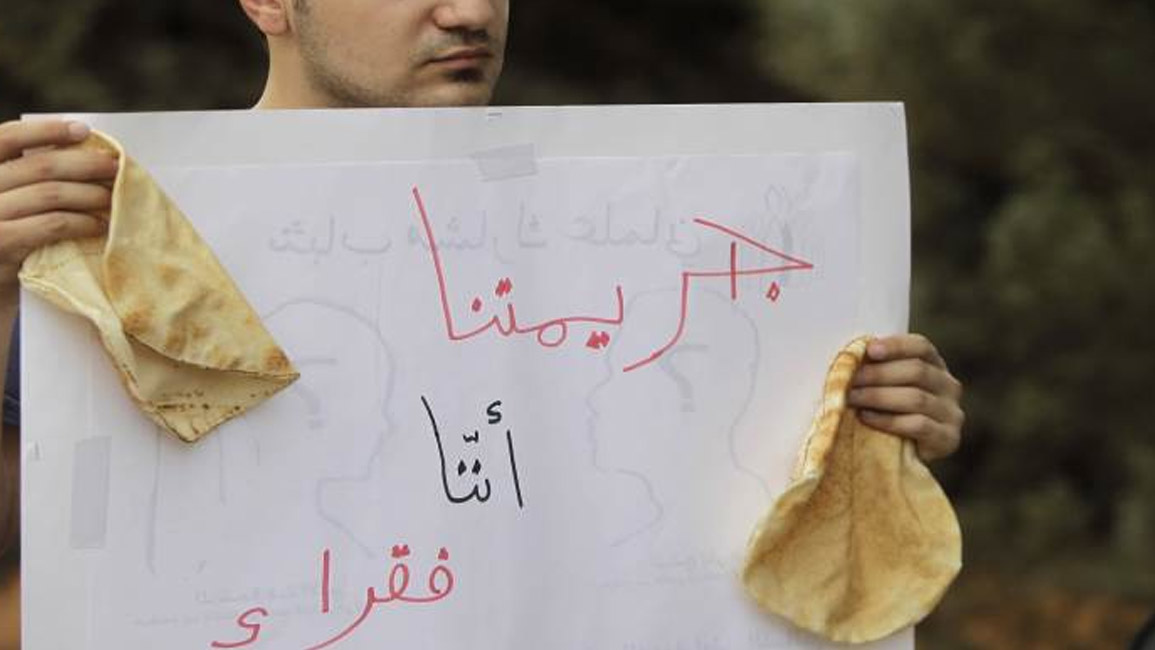 جريمتنا
أننّا
فقراء